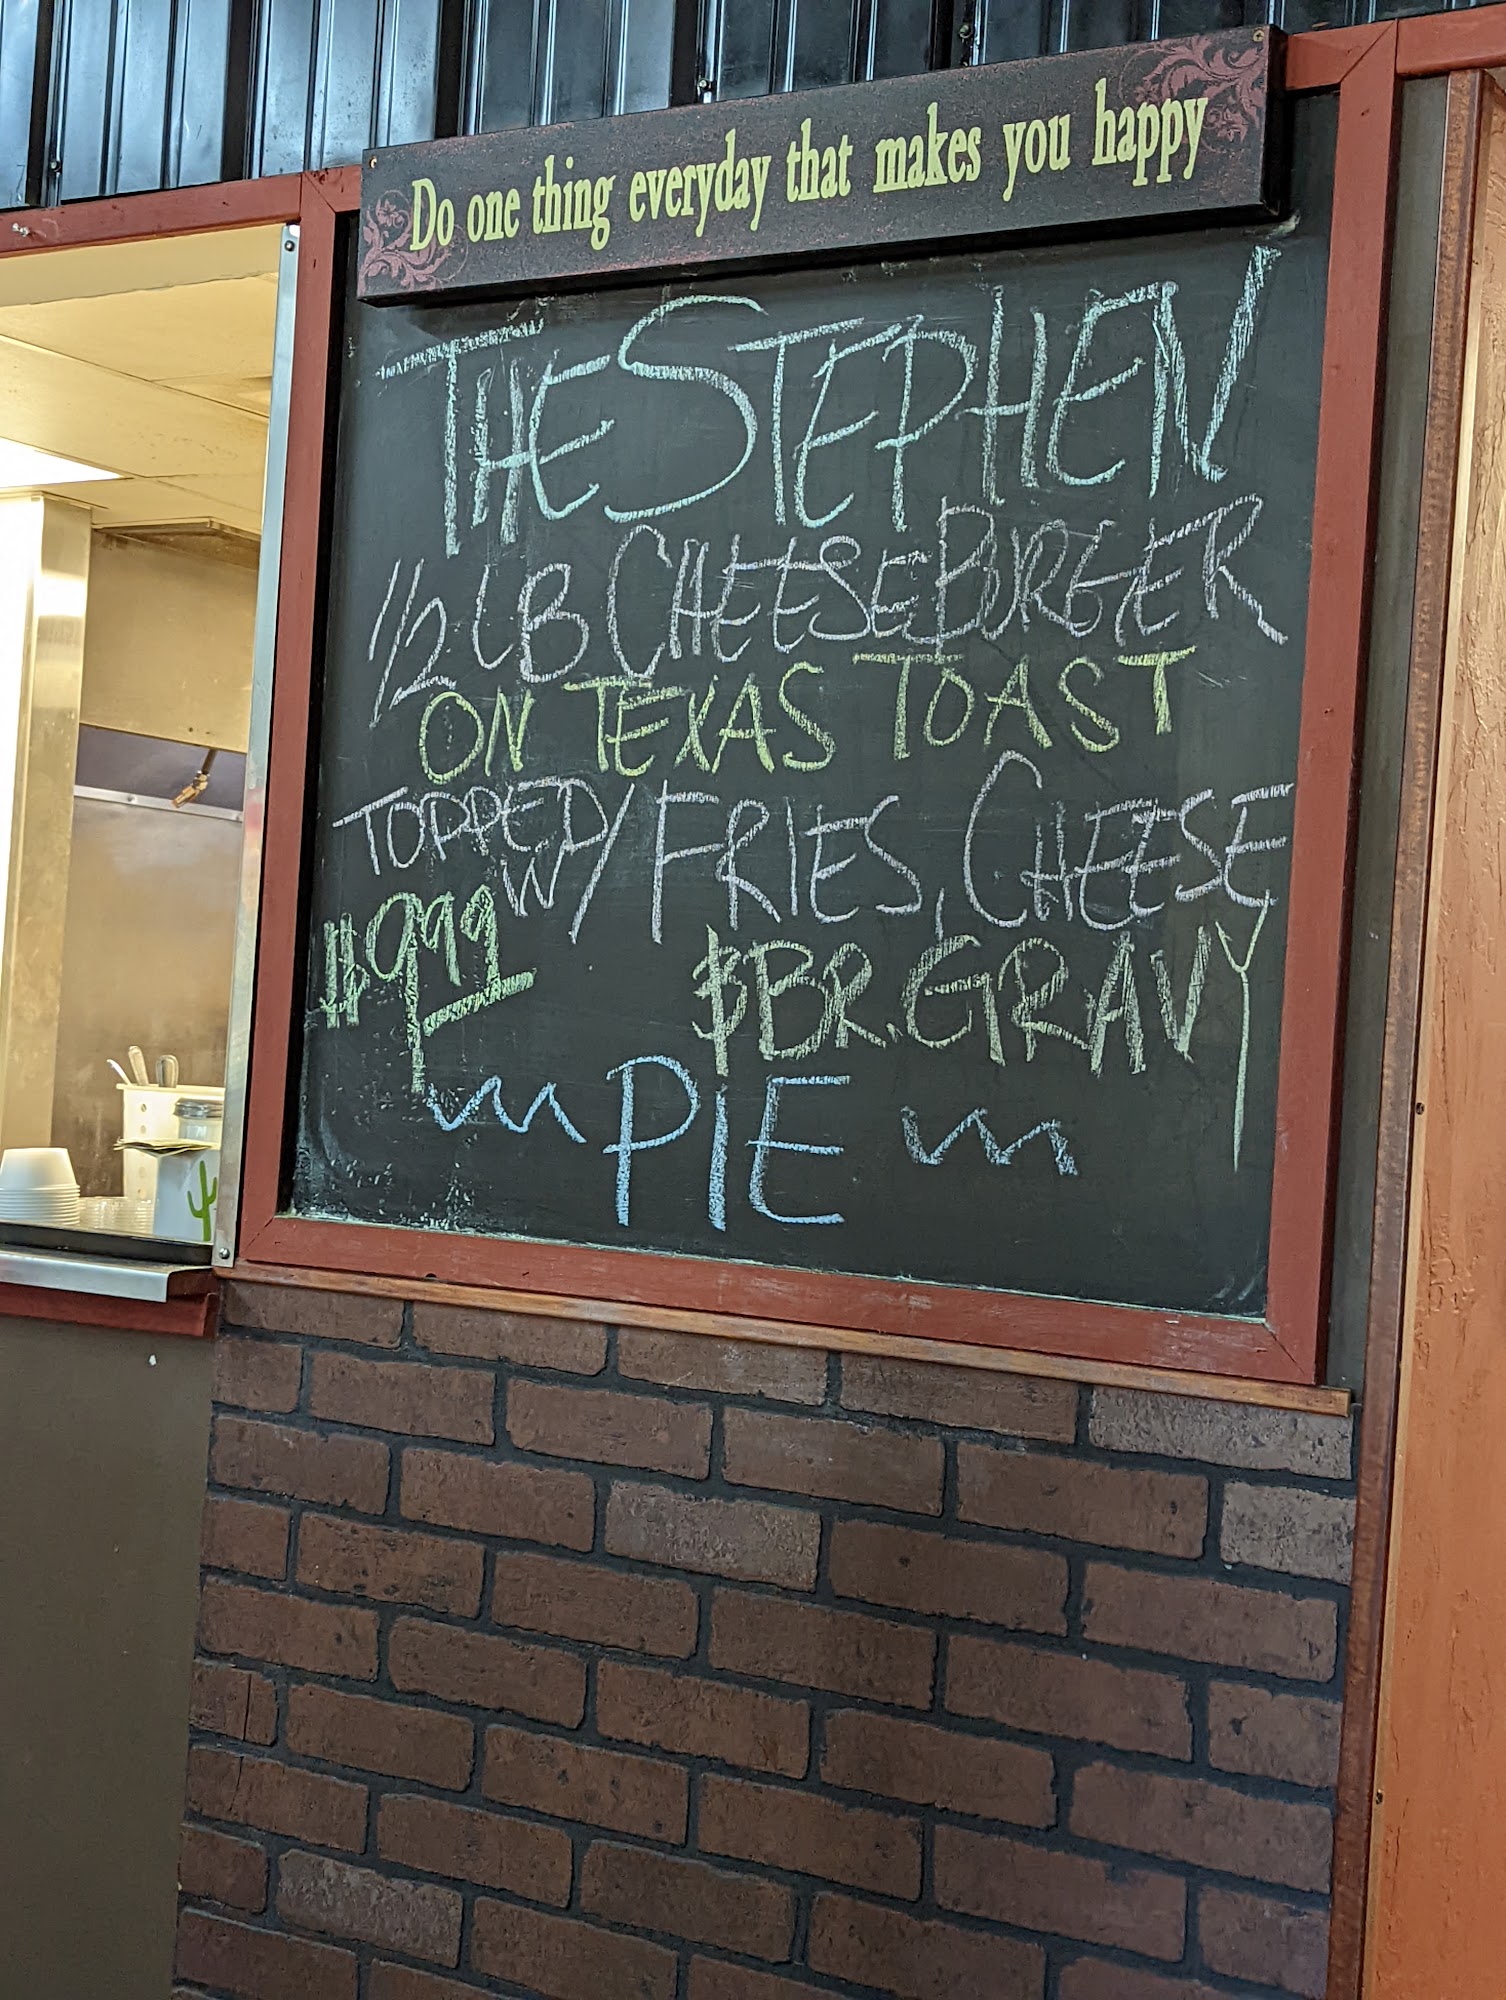 Do one thing everyday that makes you happy
THE STEPHEN
1/2 LB CHEESEBURGER
ON TEXAS TOAST
TOPPED W/ FRIES, CHEESE
$9.99 $ BR. GRAVY
PIE